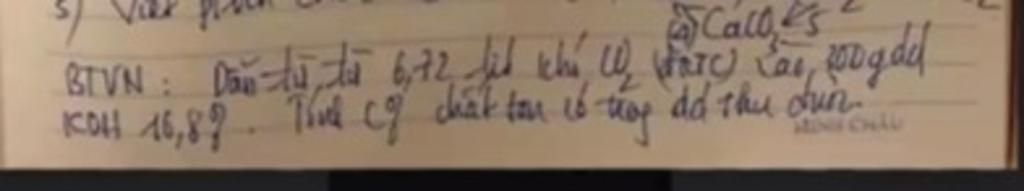 5) Viết
CaCO₃
BTVN : Dẫn từ từ 6,72 lít khí CO₂ (đktc) vào 200g dd
KOH 16,8% . Tính C% chất tan có trong dd thu được.
MINH CHÂU